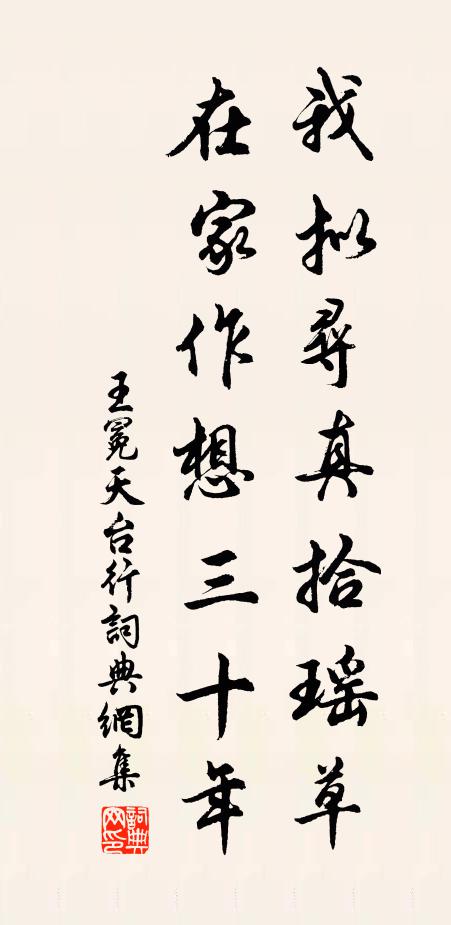 我拟尋真拾瑶草
在家作想三十年
王冕天台行詞典網集
詞典网印